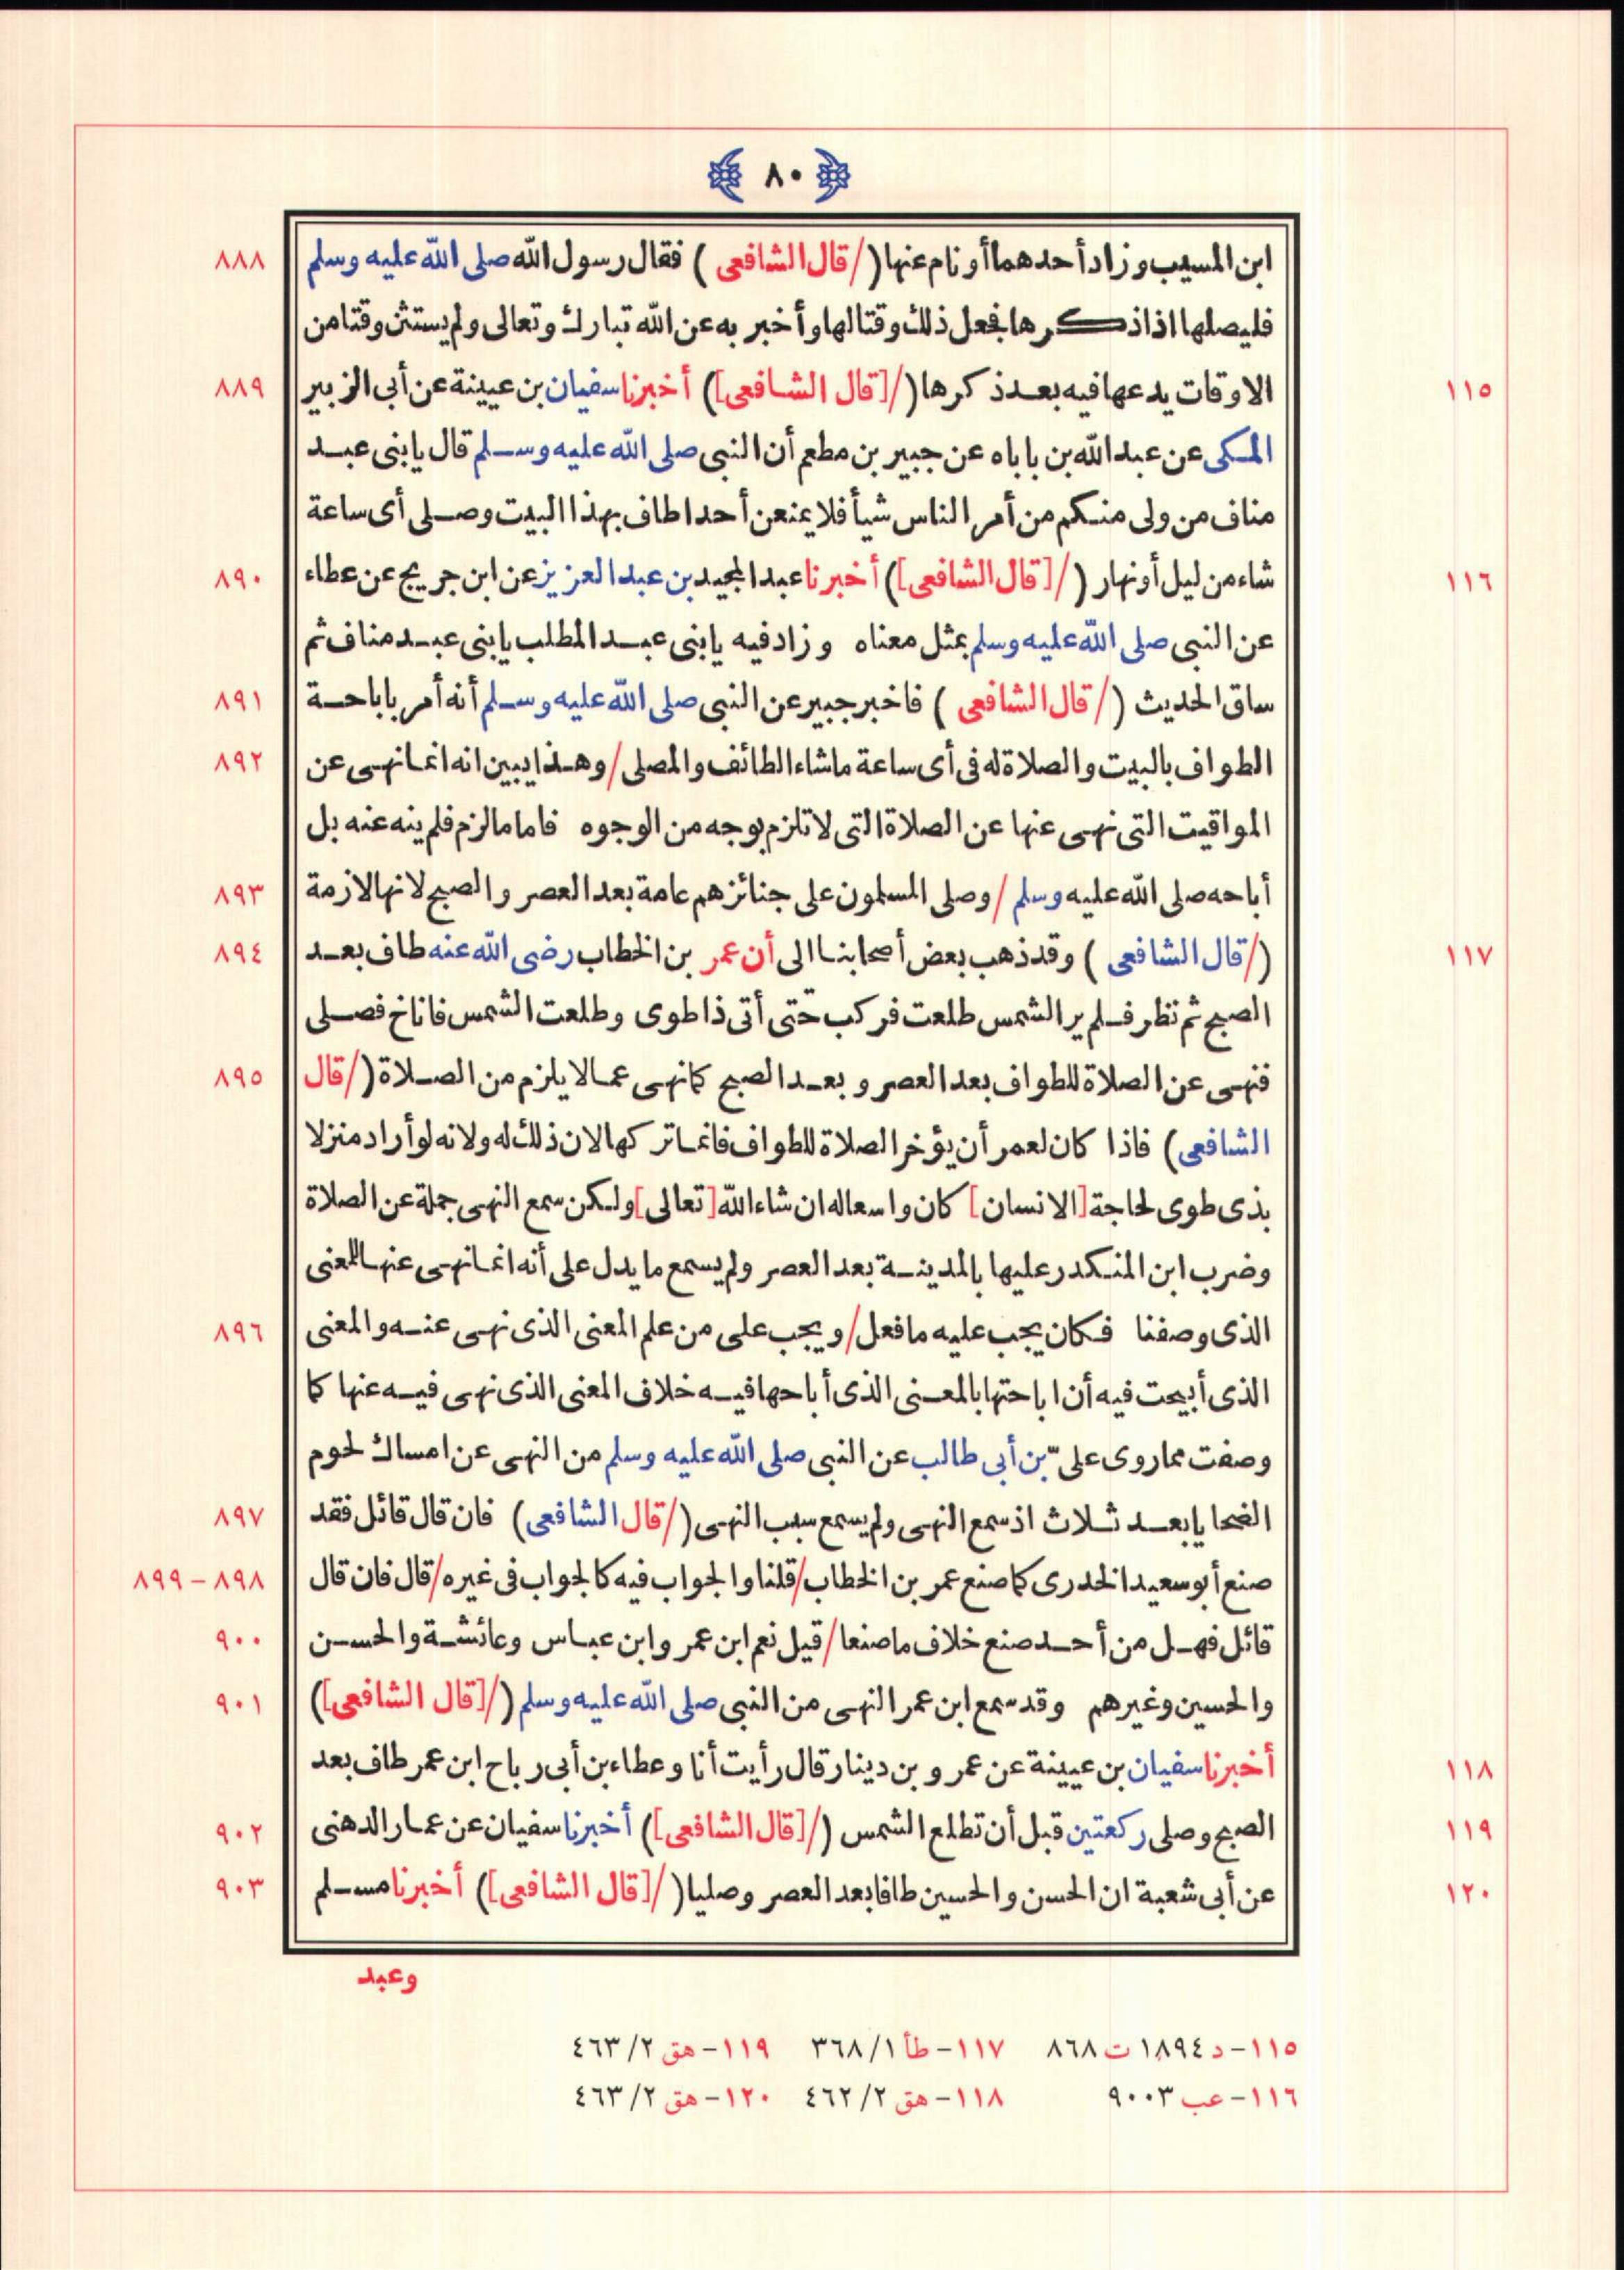 ٨٠
ابن المسيب وزاد أحدهما أو نام عنها (/قال الشافعى) فقال رسول الله صلى الله عليه وسلم ٨٨٨
فليصلها اذا ذكرها فجعل ذلك وقتا لها وأخبر به عن الله تبارك وتعالى ولم يستثن وقتا من
١١٥ الاوقات يدعها فيه بعد ذكرها (/[قال الشافعى]) أخبرنا سفيان بن عيينة عن أبى الزبير ٨٨٩
المكى عن عبد الله بن باباه عن جبير بن مطعم أن النبى صلى الله عليه وسلم قال يا بنى عبد
مناف من ولى منكم من أمر الناس شيأ فلا يمنعن أحدا طاف بهذا البيت وصلى أى ساعة
١١٦ شاء من ليل أو نهار (/[قال الشافعى]) أخبرنا عبد المجيد بن عبد العزيز عن ابن جريج عن عطاء ٨٩٠
عن النبى صلى الله عليه وسلم بمثل معناه وزاد فيه يا بنى عبد المطلب يا بنى عبد مناف ثم
ساق الحديث (/قال الشافعى) فاخبر جبير عن النبى صلى الله عليه وسلم أنه أمر باباحة ٨٩١
الطواف بالبيت والصلاة له فى أى ساعة ما شاء الطائف والمصلى/وهذا يبين انه انما نهى عن ٨٩٢
المواقيت التى نهى عنها عن الصلاة التى لا تلزم بوجه من الوجوه فاما ما لزم فلم ينه عنه بل
أباحه صلى الله عليه وسلم/وصلى المسلمون على جنائزهم عامة بعد العصر والصبح لانها لازمة ٨٩٣
١١٧ (/قال الشافعى) وقد ذهب بعض أصحابنا الى أن عمر بن الخطاب رضى الله عنه طاف بعد ٨٩٤
الصبح ثم نظر فلم ير الشمس طلعت فركب حتى أتى ذا طوى وطلعت الشمس فاناخ فصلى
فنهى عن الصلاة للطواف بعد العصر وبعد الصبح كما نهى عما لا يلزم من الصلاة (/قال ٨٩٥
الشافعى) فاذا كان لعمر أن يؤخر الصلاة للطواف فانما تركها لان ذلك له ولانه لو أراد منزلا
بذى طوى لحاجة [الانسان] كان واسعا له ان شاء الله [تعالى] ولكن سمع النهى جملة عن الصلاة
وضرب ابن المنكدر عليها بالمدينة بعد العصر ولم يسمع ما يدل على أنه انما نهى عنها للمعنى
الذى وصفنا فكان يجب عليه ما فعل/ويجب على من علم المعنى الذى نهى عنه والمعنى ٨٩٦
الذى أبيحت فيه أن اباحتها بالمعنى الذى أباحها فيه خلاف المعنى الذى نهى فيه عنها كما
وصفت مما روى علىّ بن أبى طالب عن النبى صلى الله عليه وسلم من النهى عن امساك لحوم
الضحايا بعد ثلاث اذ سمع النهى ولم يسمع سبب النهى (/قال الشافعى) فان قال قائل فقد ٨٩٧
صنع أبو سعيد الخدرى كما صنع عمر بن الخطاب/قلنا والجواب فيه كالجواب فى غيره/قال فان قال ٨٩٨ – ٨٩٩
قائل فهل من أحد صنع خلاف ما صنعا/قيل نعم ابن عمر وابن عباس وعائشة والحسن ٩٠٠
والحسين وغيرهم وقد سمع ابن عمر النهى من النبى صلى الله عليه وسلم (/[قال الشافعى]) ٩٠١
١١٨ أخبرنا سفيان بن عيينة عن عمرو بن دينار قال رأيت أنا وعطاء بن أبى رباح ابن عمر طاف بعد
١١٩ الصبح وصلى ركعتين قبل أن تطلع الشمس (/[قال الشافعى]) أخبرنا سفيان عن عمار الدهنى ٩٠٢
١٢٠ عن أبى شعبة ان الحسن والحسين طافا بعد العصر وصليا (/[قال الشافعى]) أخبرنا مسلم ٩٠٣
وعبد
١١٥- د ١٨٩٤ ت ٨٦٨ ١١٧- طأ ١/ ٣٦٨ ١١٩- هق ٢/ ٤٦٣
١١٦- عب ٩٠٠٣ ١١٨- هق ٢/ ٤٦٢ ١٢٠- هق ٢/ ٤٦٣